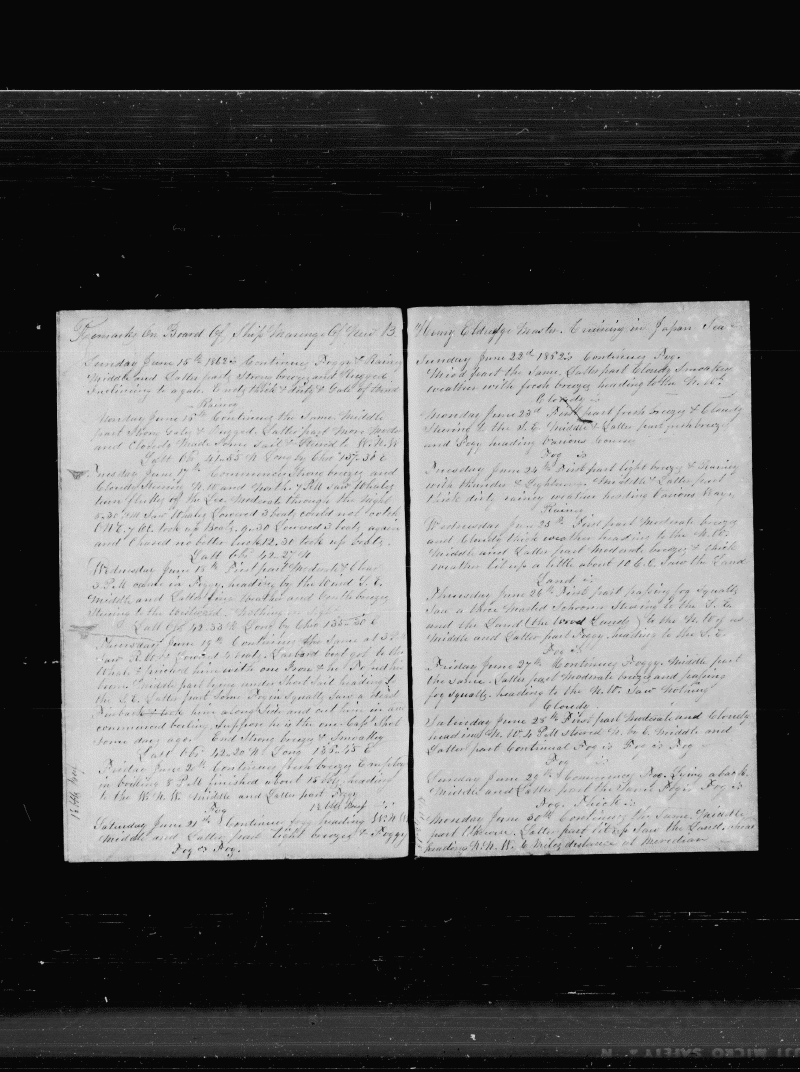 Remarks On Board Of Ship Of New B
Sunday June 15th 1862 Continues Foggy & Rainy
Middle and Latter part Strong breezes and Rugged
Inclining to again Ends thick & Gale of Wind
Rainy
Monday June 16th Continues the Same Middle
part Strong Gale & Rugged Latter part More Moderate
and Cloudy Made Some Sail & Steered W.N.W
Latt Ob 41-53 N Long by Chro
Tuesday June 17th Commences Strong breezes and
Cloudy Steering N.W and North 7 PM Saw Whales
Moderate through the Night
Saw Whales Lowered 3 boats could not
took up Boats 9.30 Lowered 3 boats again
and Chased no better luck 12.30 took up boats
Latt Ob 42-27 N
Wednesday June 18th First part Moderate & Clear
3 P.M came in Foggy heading by the Wind S.E.
Middle and Latter Weather and breezes
Steering to the Westward Nothing in Sight
Latt Ob 42.33 N Long by Chro 135-30 E
Thursday June 19th Continues the Same at 3 P.M
Saw Lowered 4 boats Larboard boat got to the
Whale & him with one Iron & he
Middle part lying under Short Sail heading to
the S.E. Latter part Some Fog in Squalls Saw a dead
took him along Side and cut him in and
commenced boiling Suppose he is the one Capt Shot
Some days ago Ends Strong breezes & Smoaky
Latt Ob 42-20 N Long 135-45 E
Friday June 20th Continues fresh breezes Employed
in boiling 8 P.M. finished about 15 bbls heading
to the W.N.W. Middle and Latter part Foggy
Fog
Saturday June 21st Continues fog heading W.N.W
Middle and Latter part light breezes & Foggy
Fog is Fog
Henry Eldredge Master Cruising in Japan Sea
Sunday June 22nd 1862 Continues Fog
Middle part the Same Latter part Cloudy Smoaky
weather with fresh breezes heading to the
Cloudy is
Monday June 23rd First part fresh breezes & Cloudy
Steering to the S.E Middle & Latter part fresh breezes
and Foggy heading Various Courses
Fog is
Tuesday June 24th First part light breezes & Rainy
with thunder & Lightning Middle & Latter part
thick dirty rainy weather heading Various Ways
Rainy
Wednesday June 25th First part Moderate breezes
and Cloudy thick weather heading to the N.W.
Middle and Latter part Moderate breezes & thick
weather lit up a little about 10 Saw the Land
Land is
Thursday June 26th First part passing fog Squalls
Saw a three Masted Schooner Steering to the
and the Land to the N.W of us
Middle and Latter part Foggy heading to the S.E.
Fog is
Friday June 27th Continues Foggy Middle part
the Same Latter part Moderate breezes and passing
fog squalls heading to the N.W. Saw Nothing
Cloudy
Saturday June 28th First part Moderate and Cloudy
heading N.W. 4 PM Middle and
Latter part Continual Fog is Fog is Fog
Fog
Sunday June 29th Commences Fog Lying aback
Middle and Latter part the Same Fog is Fog is
Fog Thick is
Monday June 30th Continues the Same Middle
part Likewise Latter part lit up Saw the Land
heading N.N.W. 6 Miles distance at Meridian